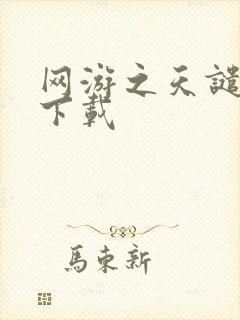 网游之天谴
下载
馬東新